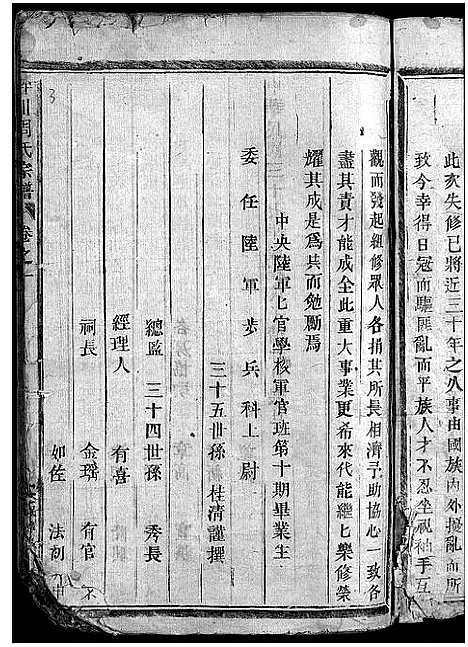 此亥失修已將近三十年之久事由國族內外擾亂而所
致今幸得日冠而驅匪亂而平族人才不忍坐視袖手互
觀而發起組修眾人各捐其所長相濟予助協心一致各
盡其責才能成全此重大事業更希來代能繼匕樂修榮
耀其成是為共而勉勵焉
中央陸軍匕官學校軍官班第十期畢業生
委任陸軍步兵科上尉
三十五世孫桂清謹撰
總監 三十四世孫 秀長
經理人 有喜
祠長 金瑤 有官
如佐 法初
川周氏宗譜 卷之
3